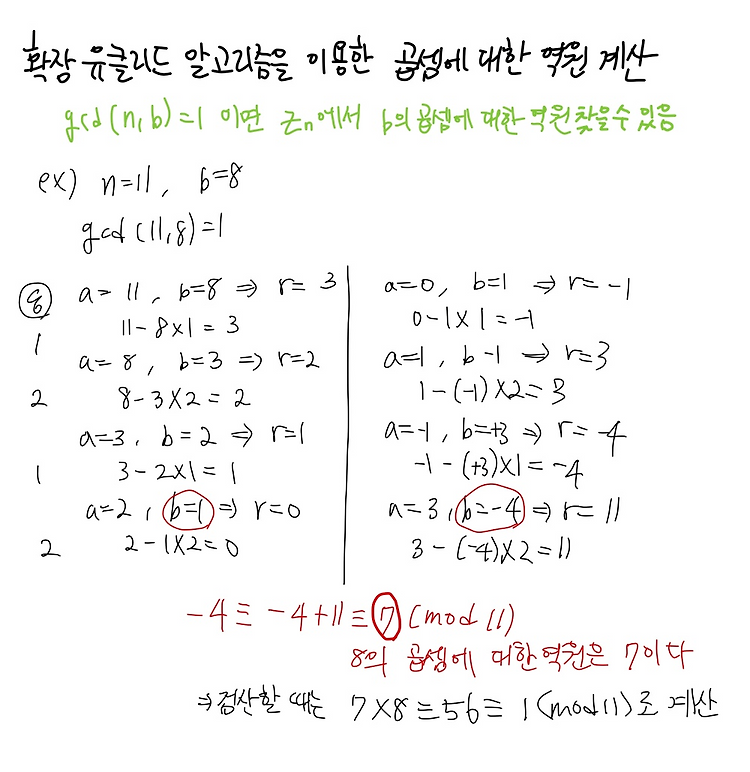 확장 유클리드 알고리즘을 이용한 곱셈에 대한 역원 계산
gcd(n,b)=1 이면 Zn에서 b의 곱셈에 대한 역원 찾을 수 있음
ex) n=11, b=8
gcd(11,8)=1
q
a=11, b=8 ⇒ r=3
11-8×1=3
1
a=8, b=3 ⇒ r=2
2
8-3×2=2
a=3, b=2 ⇒ r=1
1
3-2×1=1
a=2, b=1 ⇒ r=0
2
2-1×2=0
a=0, b=1 ⇒ r=-1
0-1×1=-1
a=1, b-1 ⇒ r=3
1-(-1)×2=3
a=-1, b=+3 ⇒ r=-4
-1-(+3)×1=-4
a=3, b=-4 ⇒ r=11
3-(-4)×2=11
-4≡-4+11≡7(mod 11)
8의 곱셈에 대한 역원은 7이다
⇒검산할 때는 7×8≡56≡1(mod 11)로 계산